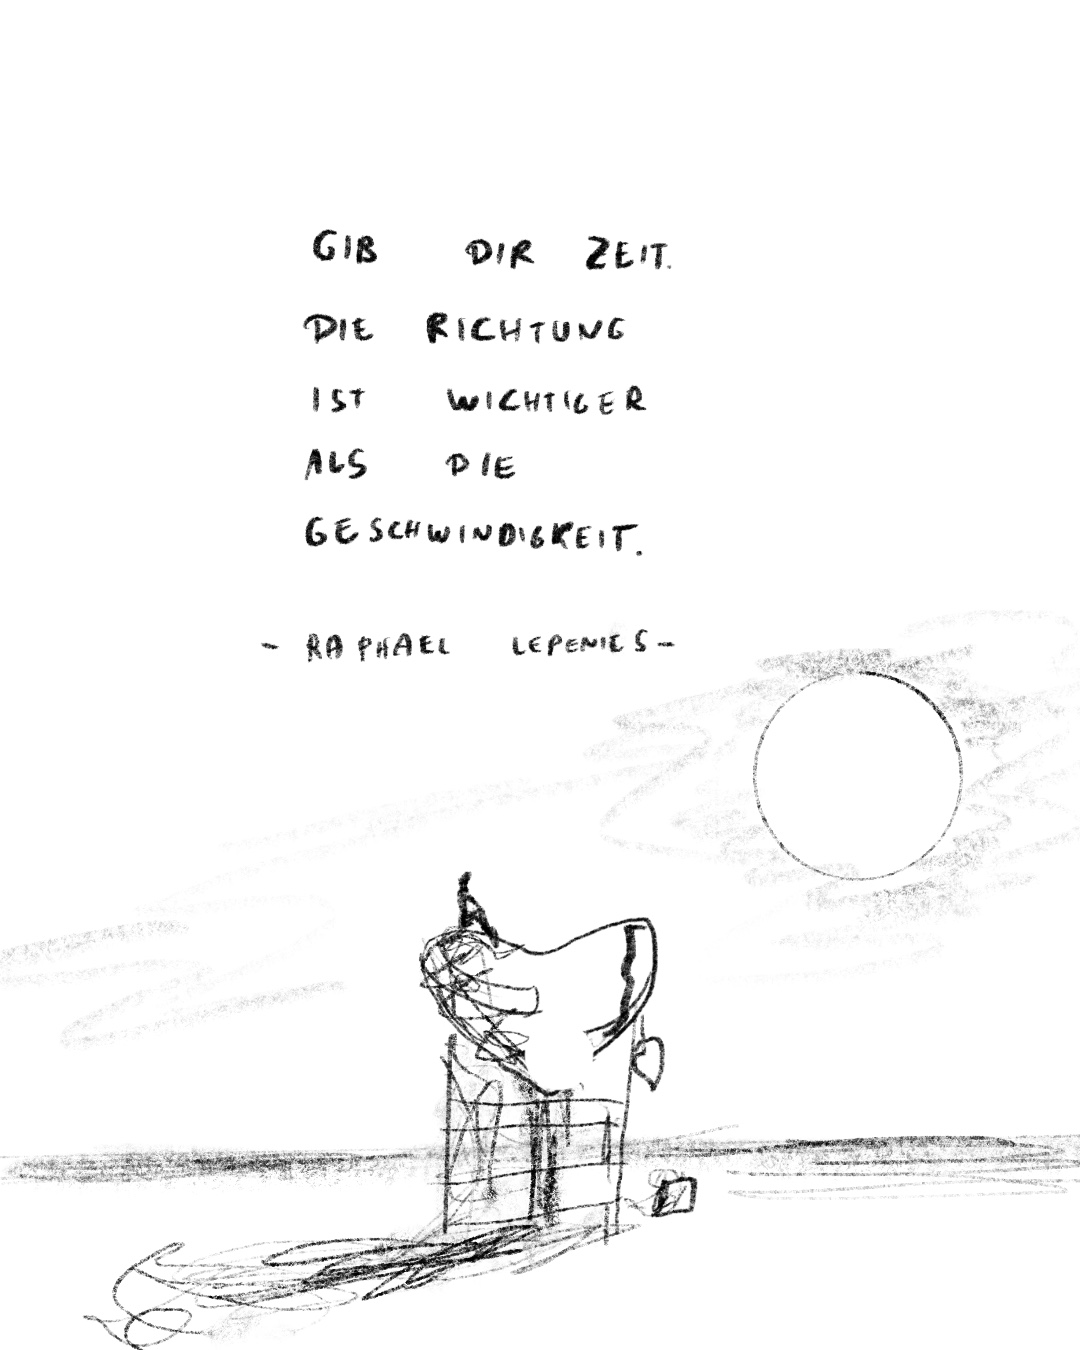 GIB DIR ZEIT.
DIE RICHTUNG
IST WICHTIGER
ALS DIE
GESCHWINDIGKEIT.
- RAPHAEL LEPENIES -